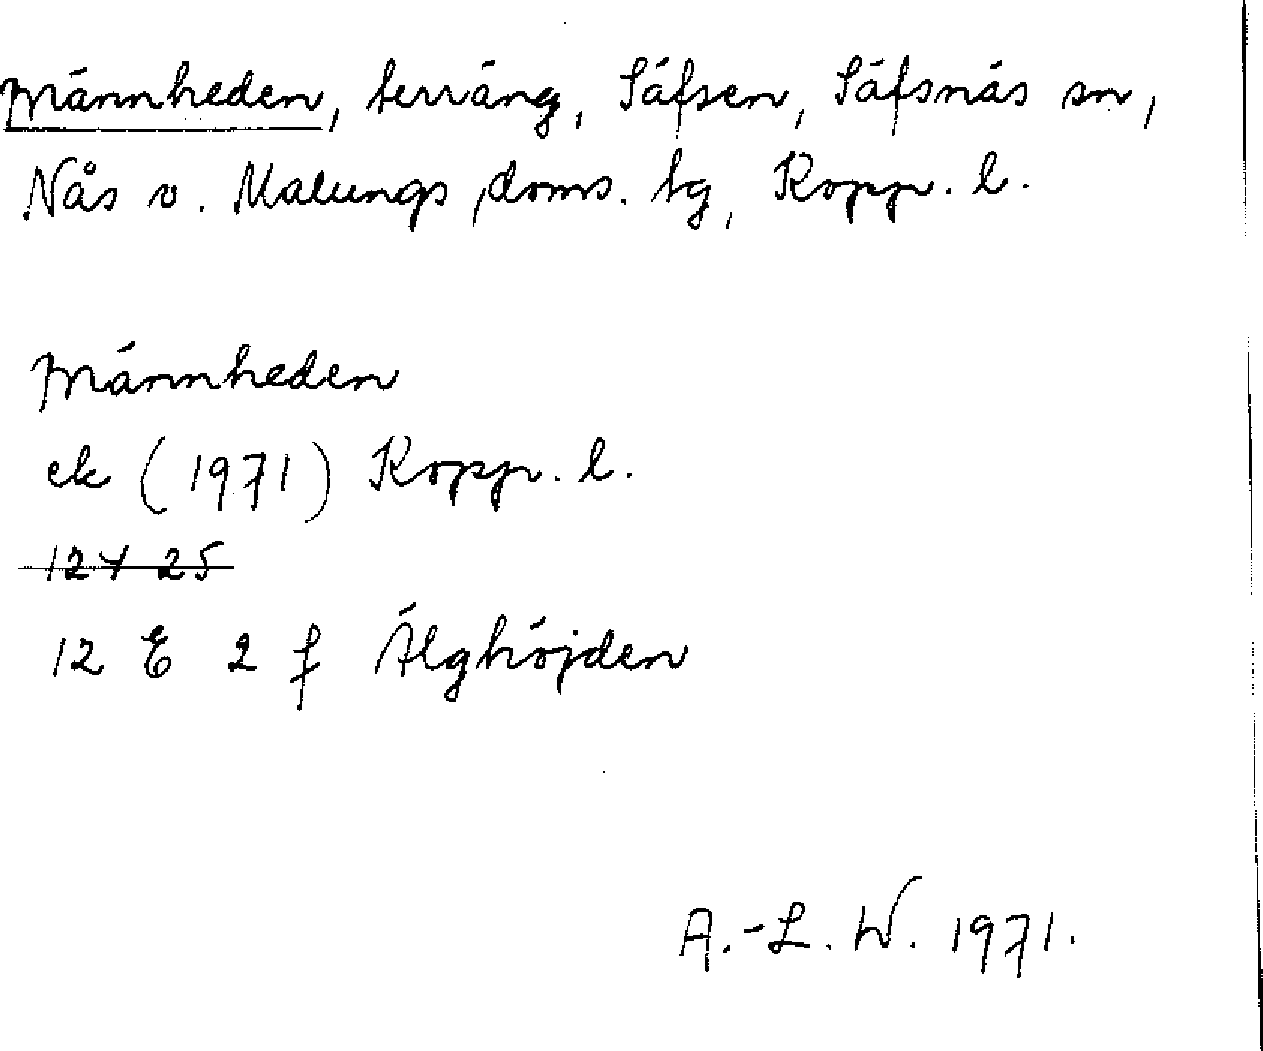 Männheden, terräng, Säfsen, Säfsnäs sn,
Nås o. Malungs doms. tg, Kopp. l.
Männheden
ek (1971) Kopp. l.
12 E 2 f Älghöjden
A.-L. W. 1971.